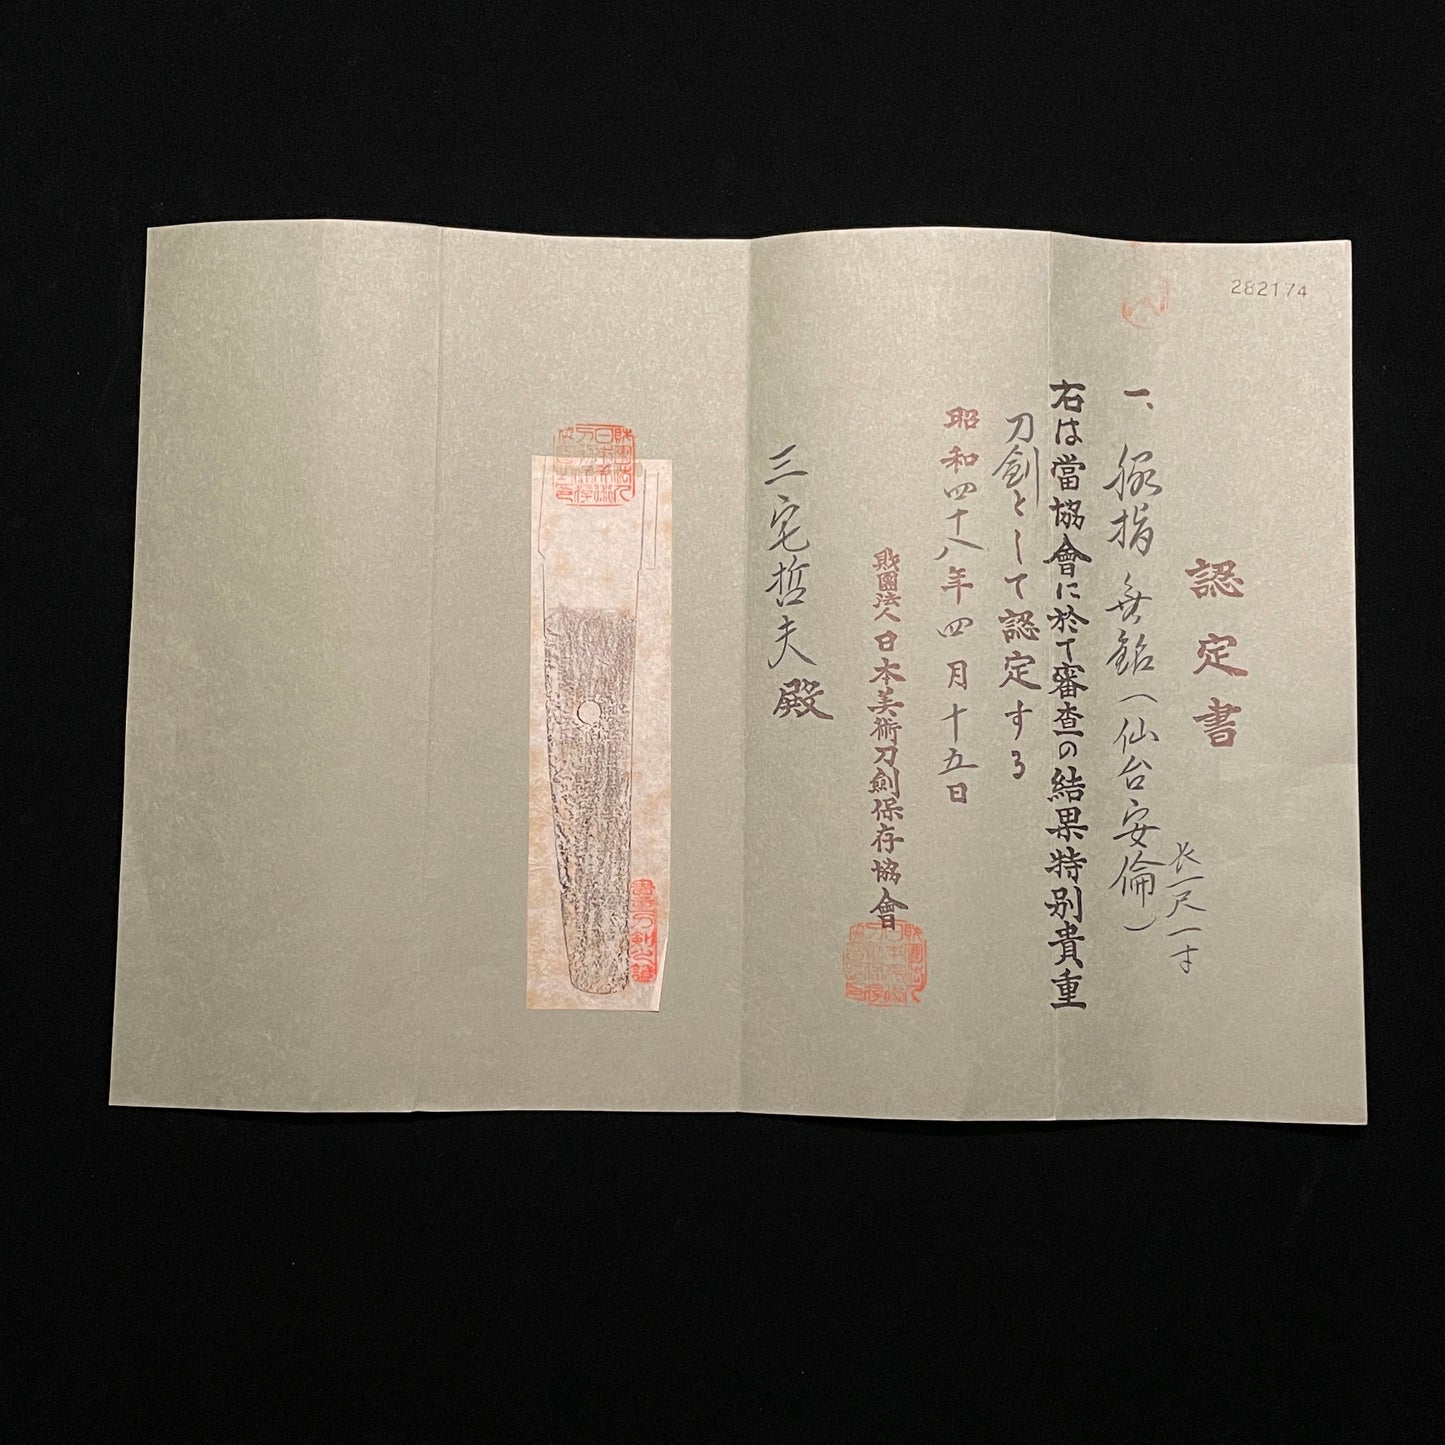 282174
認定書
一、脇指 無銘(仙台安倫)
長一尺一寸
右は當協會に於て審査の結果特別貴重
刀劍として認定する
昭和四十八年四月十五日
財團法人日本美術刀劍保存協會
三宅哲夫殿